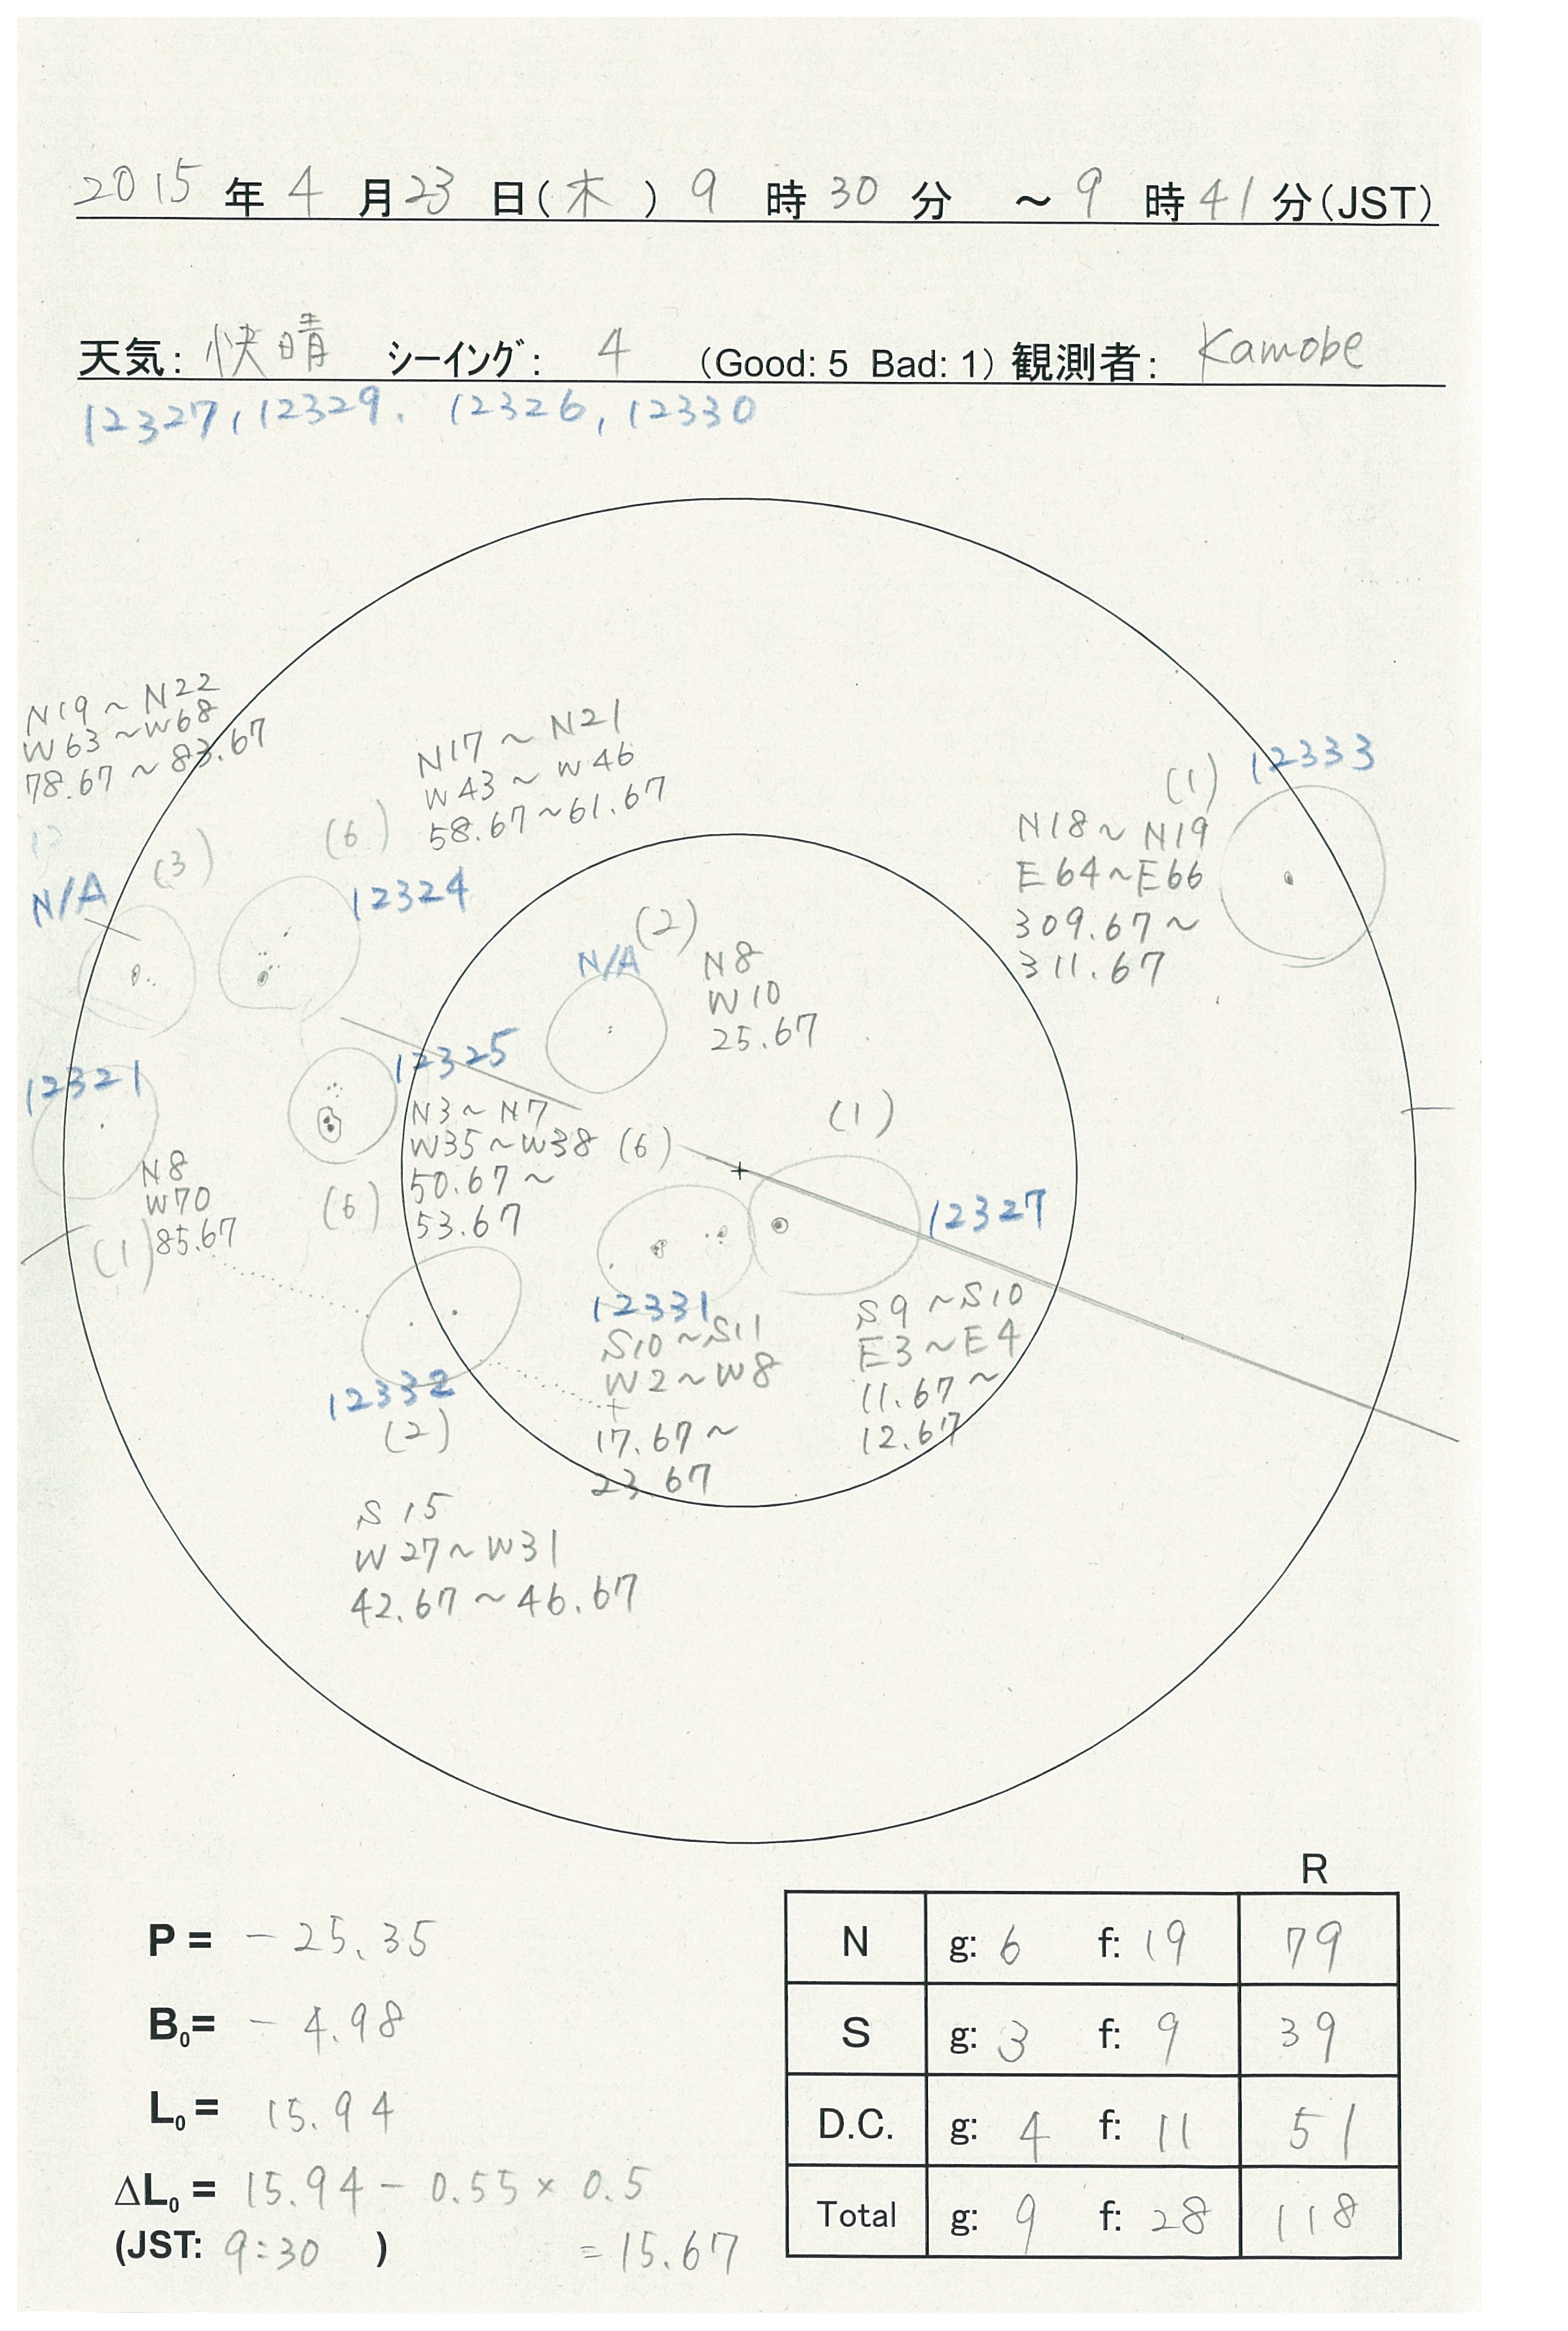 2015 年 4 月 23 日(木) 9 時 30 分 ～ 9 時 41 分(JST)
天気: 快晴 シーイング: 4 (Good: 5 Bad: 1) 観測者: Kamobe
12327, 12329. 12326, 12330
N19～N22
W63～W68
78.67～83.67
N/A
(3)
(6)
N17～N21
W43～W46
58.67～61.67
12324
(2)
N/A
N8
W10
25.67
(1)
12333
N18～N19
E64～E66
309.67～
311.67
12321
N8
W70
85.67
(1)
12325
N3～N7
W35～W38
50.67～
53.67
(6)
(6)
(1)
12327
S9～S10
E3～E4
11.67～
12.67
12331
S10～S11
W2～W8
17.67～
23.67
12332
(2)
S15
W27～W31
42.67～46.67
P = -25.35
B0= -4.98
L0= 15.94
ΔL0= 15.94 - 0.55 × 0.5
(JST: 9:30 ) = 15.67
R
N g: 6 f: 19 79
S g: 3 f: 9 39
D.C. g: 4 f: 11 51
Total g: 9 f: 28 118